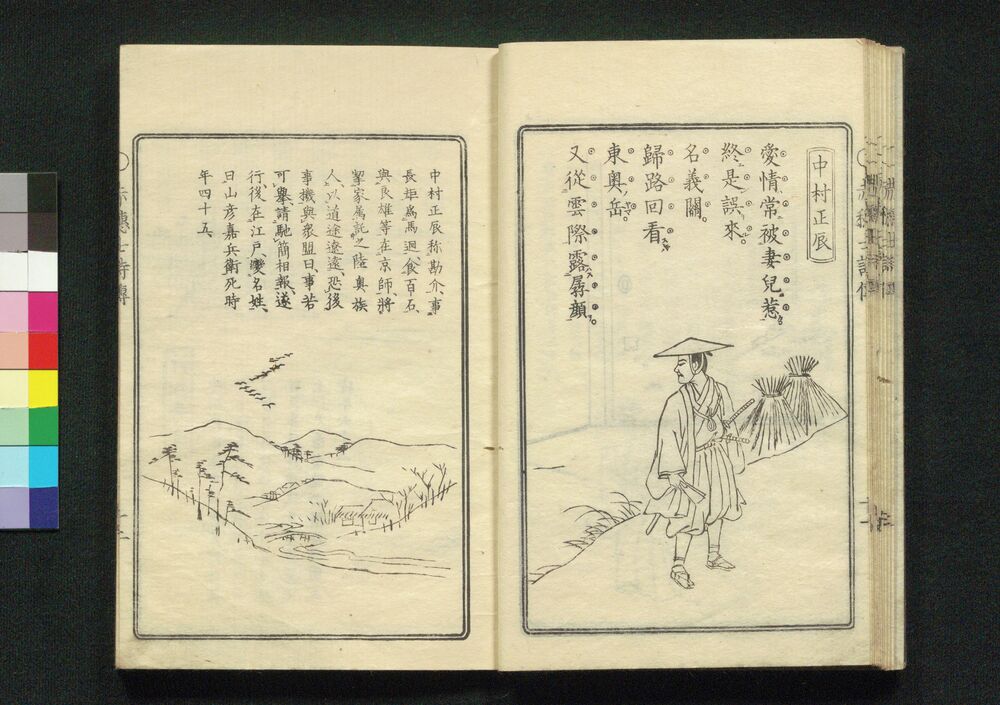 中村正辰
愛情常被妻兒惹
終是誤來
名義關
歸路回看
東奥岳
又從雲際露孱顏
中村正辰称勘介、事
長矩為馬廻、食百石、
與良雄等在京師、將
挈家属託之陸奥族
人、以道途遼遠、恐後
事機、與衆盟曰、事若
可擧、請馳簡相報、遂
行、後在江戸、變名姓、
曰山彦嘉兵衛、死時
年四十五、